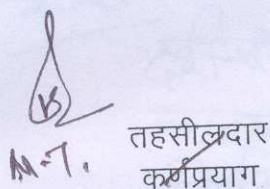 तहसीलदार
कर्णप्रयाग